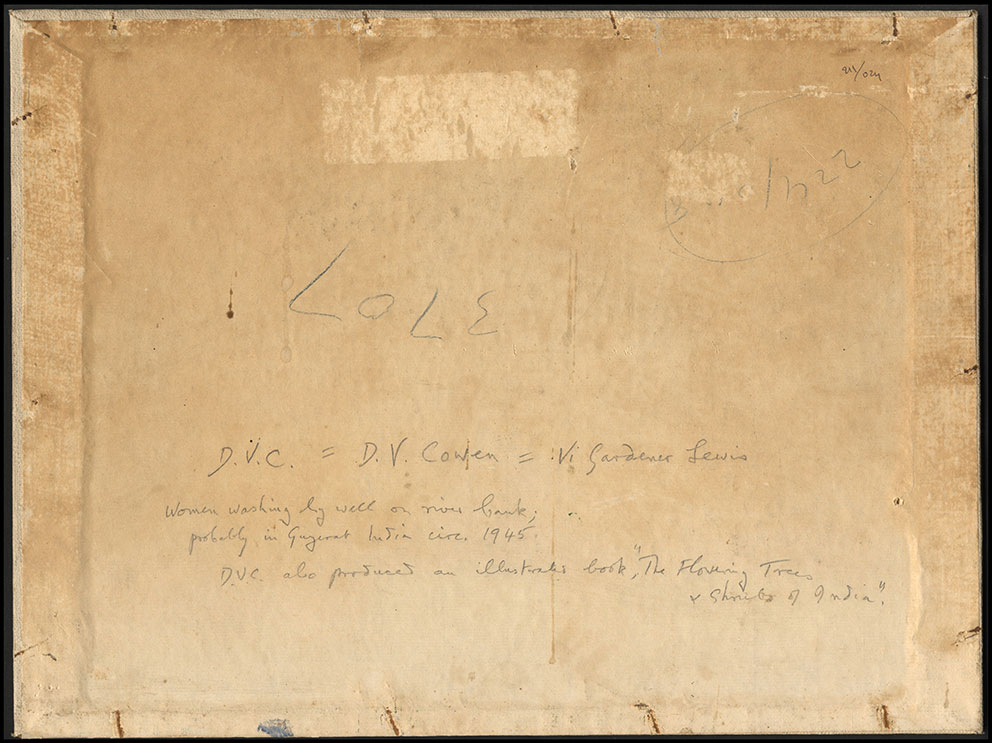 LOLE
D.V.C. = D.V. Cowen = Vi Gardener Lewis
Women washing by well on river bank,
probably in Gujerat India circ. 1945.
D.V.C. also produced an illustrated book, "The Flowering Trees
& Shrubs of India".